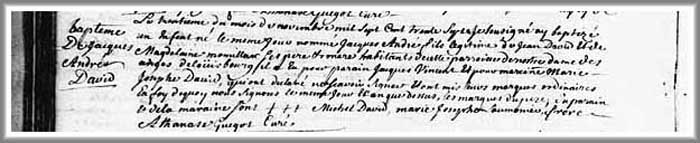 Athanase Guegot Curé
bapteme
De Jaques
André
David
Le trentieme du mois de novembre mil sept Cent trente Sept je sousigné ay baptizé
un Enfant né le meme Jour nommé Jacques André fils legitime du Jean David et de
Magdelaine monmellian Les pere & mere habitants de cette parroisse de nostre dame des
anges de Louisbourg il a Eu pour parain Jacques Vincent Et pour mareine Marie
Josephe David, qui ont declaré ne scavoir signer et ont mis Leurs marques ordinaires
La foy dequoy nous avons signé le meme Jour Et an que dessus, les marques du pere, du parain
et de la maraine sont + + + Michel David, marie Josephe frere
Athanase Guegot Curé